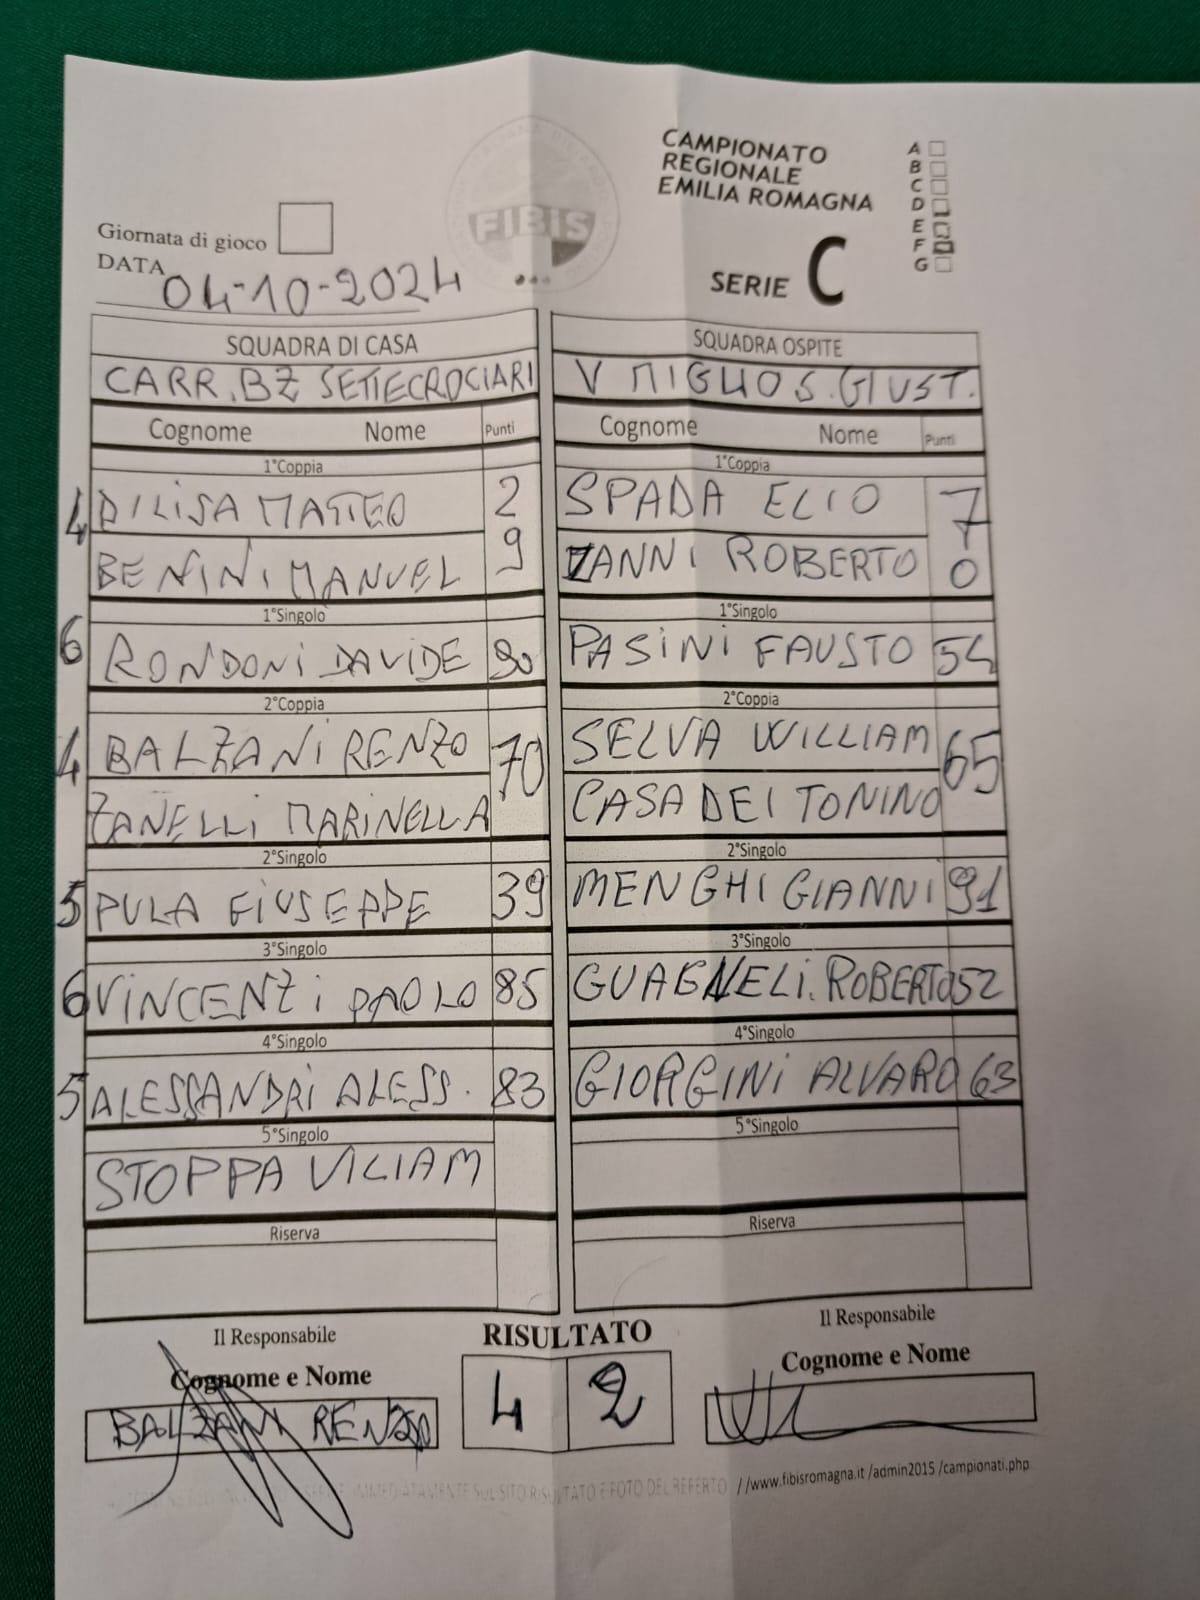 CAMPIONATO
REGIONALE
EMILIA ROMAGNA
A
B
C
D
E
F
G
FIBiS
Giornata di gioco
DATA 04-10-2024
SERIE C
SQUADRA DI CASA
SQUADRA OSPITE
CARR.BZ SETTECROCIARI
V MIGLIO S.GIUST.
Cognome Nome Punti
Cognome Nome Punti
1°Coppia
1°Coppia
4 DILISA MATTEO 2
SPADA ELIO 7
BENINI MANUEL 9
ZANNI ROBERTO 0
1°Singolo
1°Singolo
6 RONDONI DAVIDE 90
PASINI FAUSTO 54
2°Coppia
2°Coppia
4 BALZANI RENZO 70
SELVA WILLIAM 65
ZANELLI MARINELLA
CASADEI TONINO
2°Singolo
2°Singolo
5 PULA GIUSEPPE 39
MENGHI GIANNI 91
3°Singolo
3°Singolo
6 VINCENZI PAOLO 85
GUAGNELI ROBERTO 52
4°Singolo
4°Singolo
5 ALESSANDRI ALESS. 83
GIORGINI ALVARO 63
5°Singolo
5°Singolo
STOPPA VILIAM
Riserva
Riserva
Il Responsabile
RISULTATO
Il Responsabile
Cognome e Nome
Cognome e Nome
BALZANI RENZO
4 2
IMMEDIATAMENTE SUL SITO RISULTATO E FOTO DEL REFERTO //www.fibisromagna.it /admin2015 /campionati.php